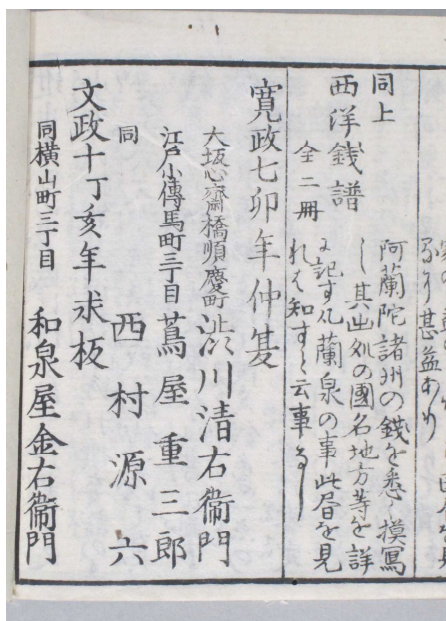 同上
西洋銭譜
全二冊
阿蘭陀諸州の錢を悉く摸寫
し其出処の國名地方等を詳
に記す凡蘭泉の事此書を見
れは知すと云事なし
寛政七卯年仲夏
大坂心齋橋順慶町 澁川清右衞門
江戸小傳馬町三丁目 蔦屋重三郎
同 西村源六
文政十丁亥年求板
同横山町三丁目 和泉屋金右衞門